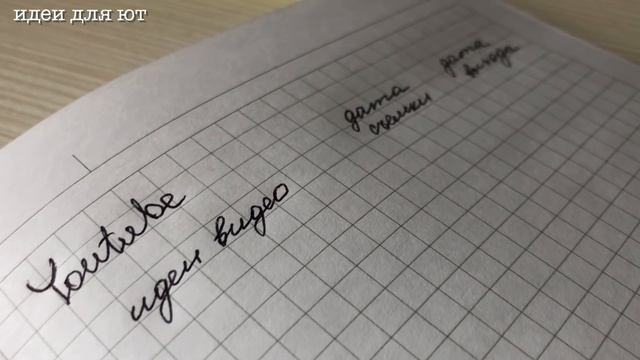 идеи для ют
Youtube
идеи видео
дата
съемки
дата
выхода